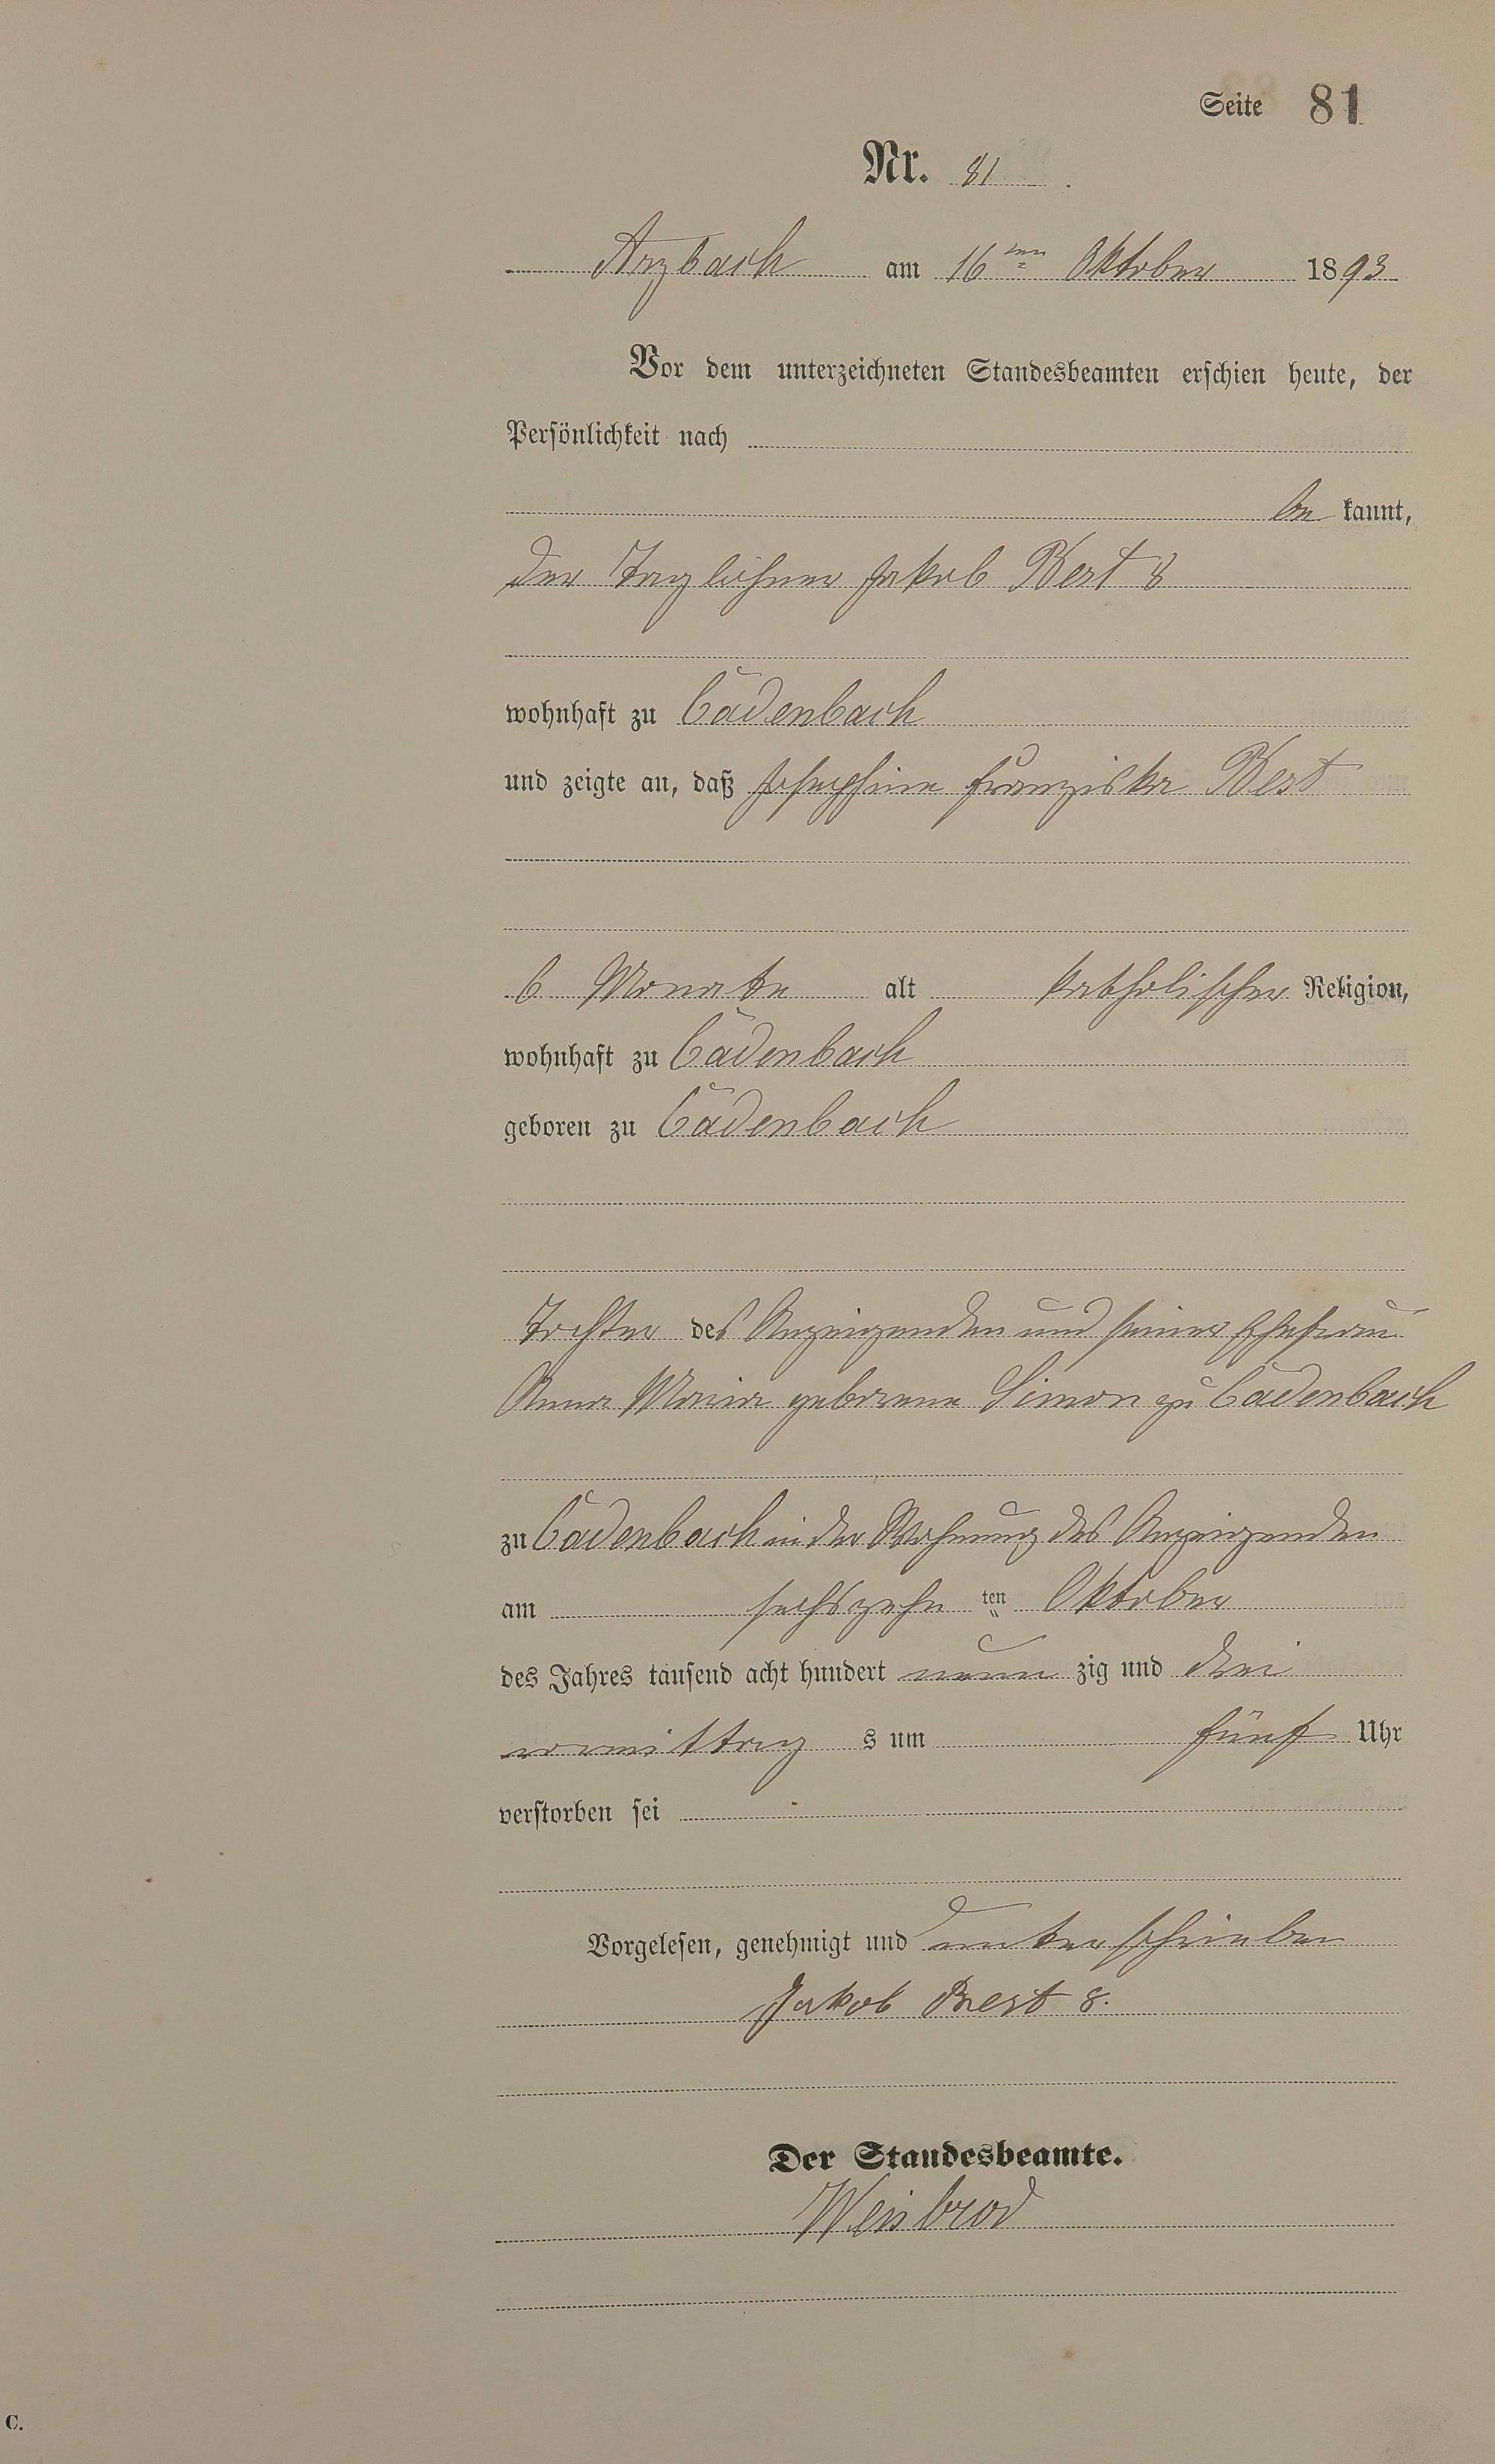 Seite 81
Nr. 81.
Arzbach am 16ten Oktober 1893
Vor dem unterzeichneten Standesbeamten erschien heute, der
Persönlichkeit nach
be kannt,
der Taglöhner Jakob Best 8
wohnhaft zu Cadenbach
und zeigte an, daß Josephine Franziska Best
6 Monate alt katholischer Religion,
wohnhaft zu Cadenbach
geboren zu Cadenbach
Tochter des Anzeigenden und seiner Ehefrau
Anna Maria geborene Simon zu Cadenbach
zu Cadenbach in der Wohnung des Anzeigenden
am sechszehn ten Oktober
des Jahres tausend acht hundert neun zig und drei
vormittag s um fünf Uhr
verstorben sei
Vorgelesen, genehmigt und unterschrieben
Jakob Best 8.
Der Standesbeamte.
Weisbrod
C.